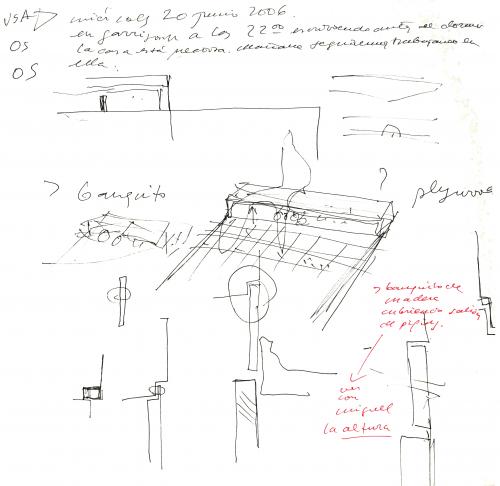 USA miércoles 20 junio 2006.
OS en garrigosa a las 22 00 escribiendo antes de dormir
OS la casa está preciosa. mañana seguiremos trabajando en
ella.
?
> banquito
plywood
> banquito de
madera
cubriendo salida
de piping.
ver
con
miguel
la altura